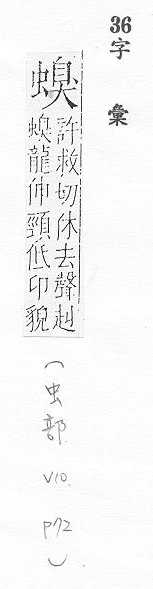 36字彙
螑
許救切休去聲赳
螑龍伸頸低卬貌
(虫部 V10. P72)